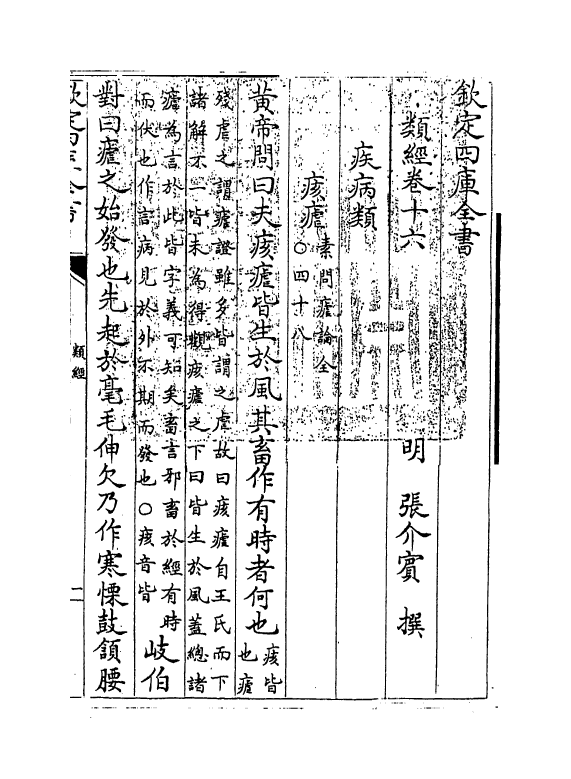 欽定四庫全書
類經卷十六 明 張介賓 撰
疾病類
痎瘧 素問瘧論全
〇四十八
黄帝問曰夫痎瘧皆生於風其畜作有時者何也 痎皆
也瘧
殘虐之謂瘧證雖多皆謂之虐故曰痎瘧自王氏而下
諸解不一皆未為得觀痎瘧之下曰皆生於風蓋總諸
瘧為言於此皆字義可知矣畜言邪畜於經有時
而伏也作言病見於外不期而發也〇痎音皆
岐伯
對曰瘧之始發也先起於毫毛伸欠乃作寒慄鼓頷腰
類經